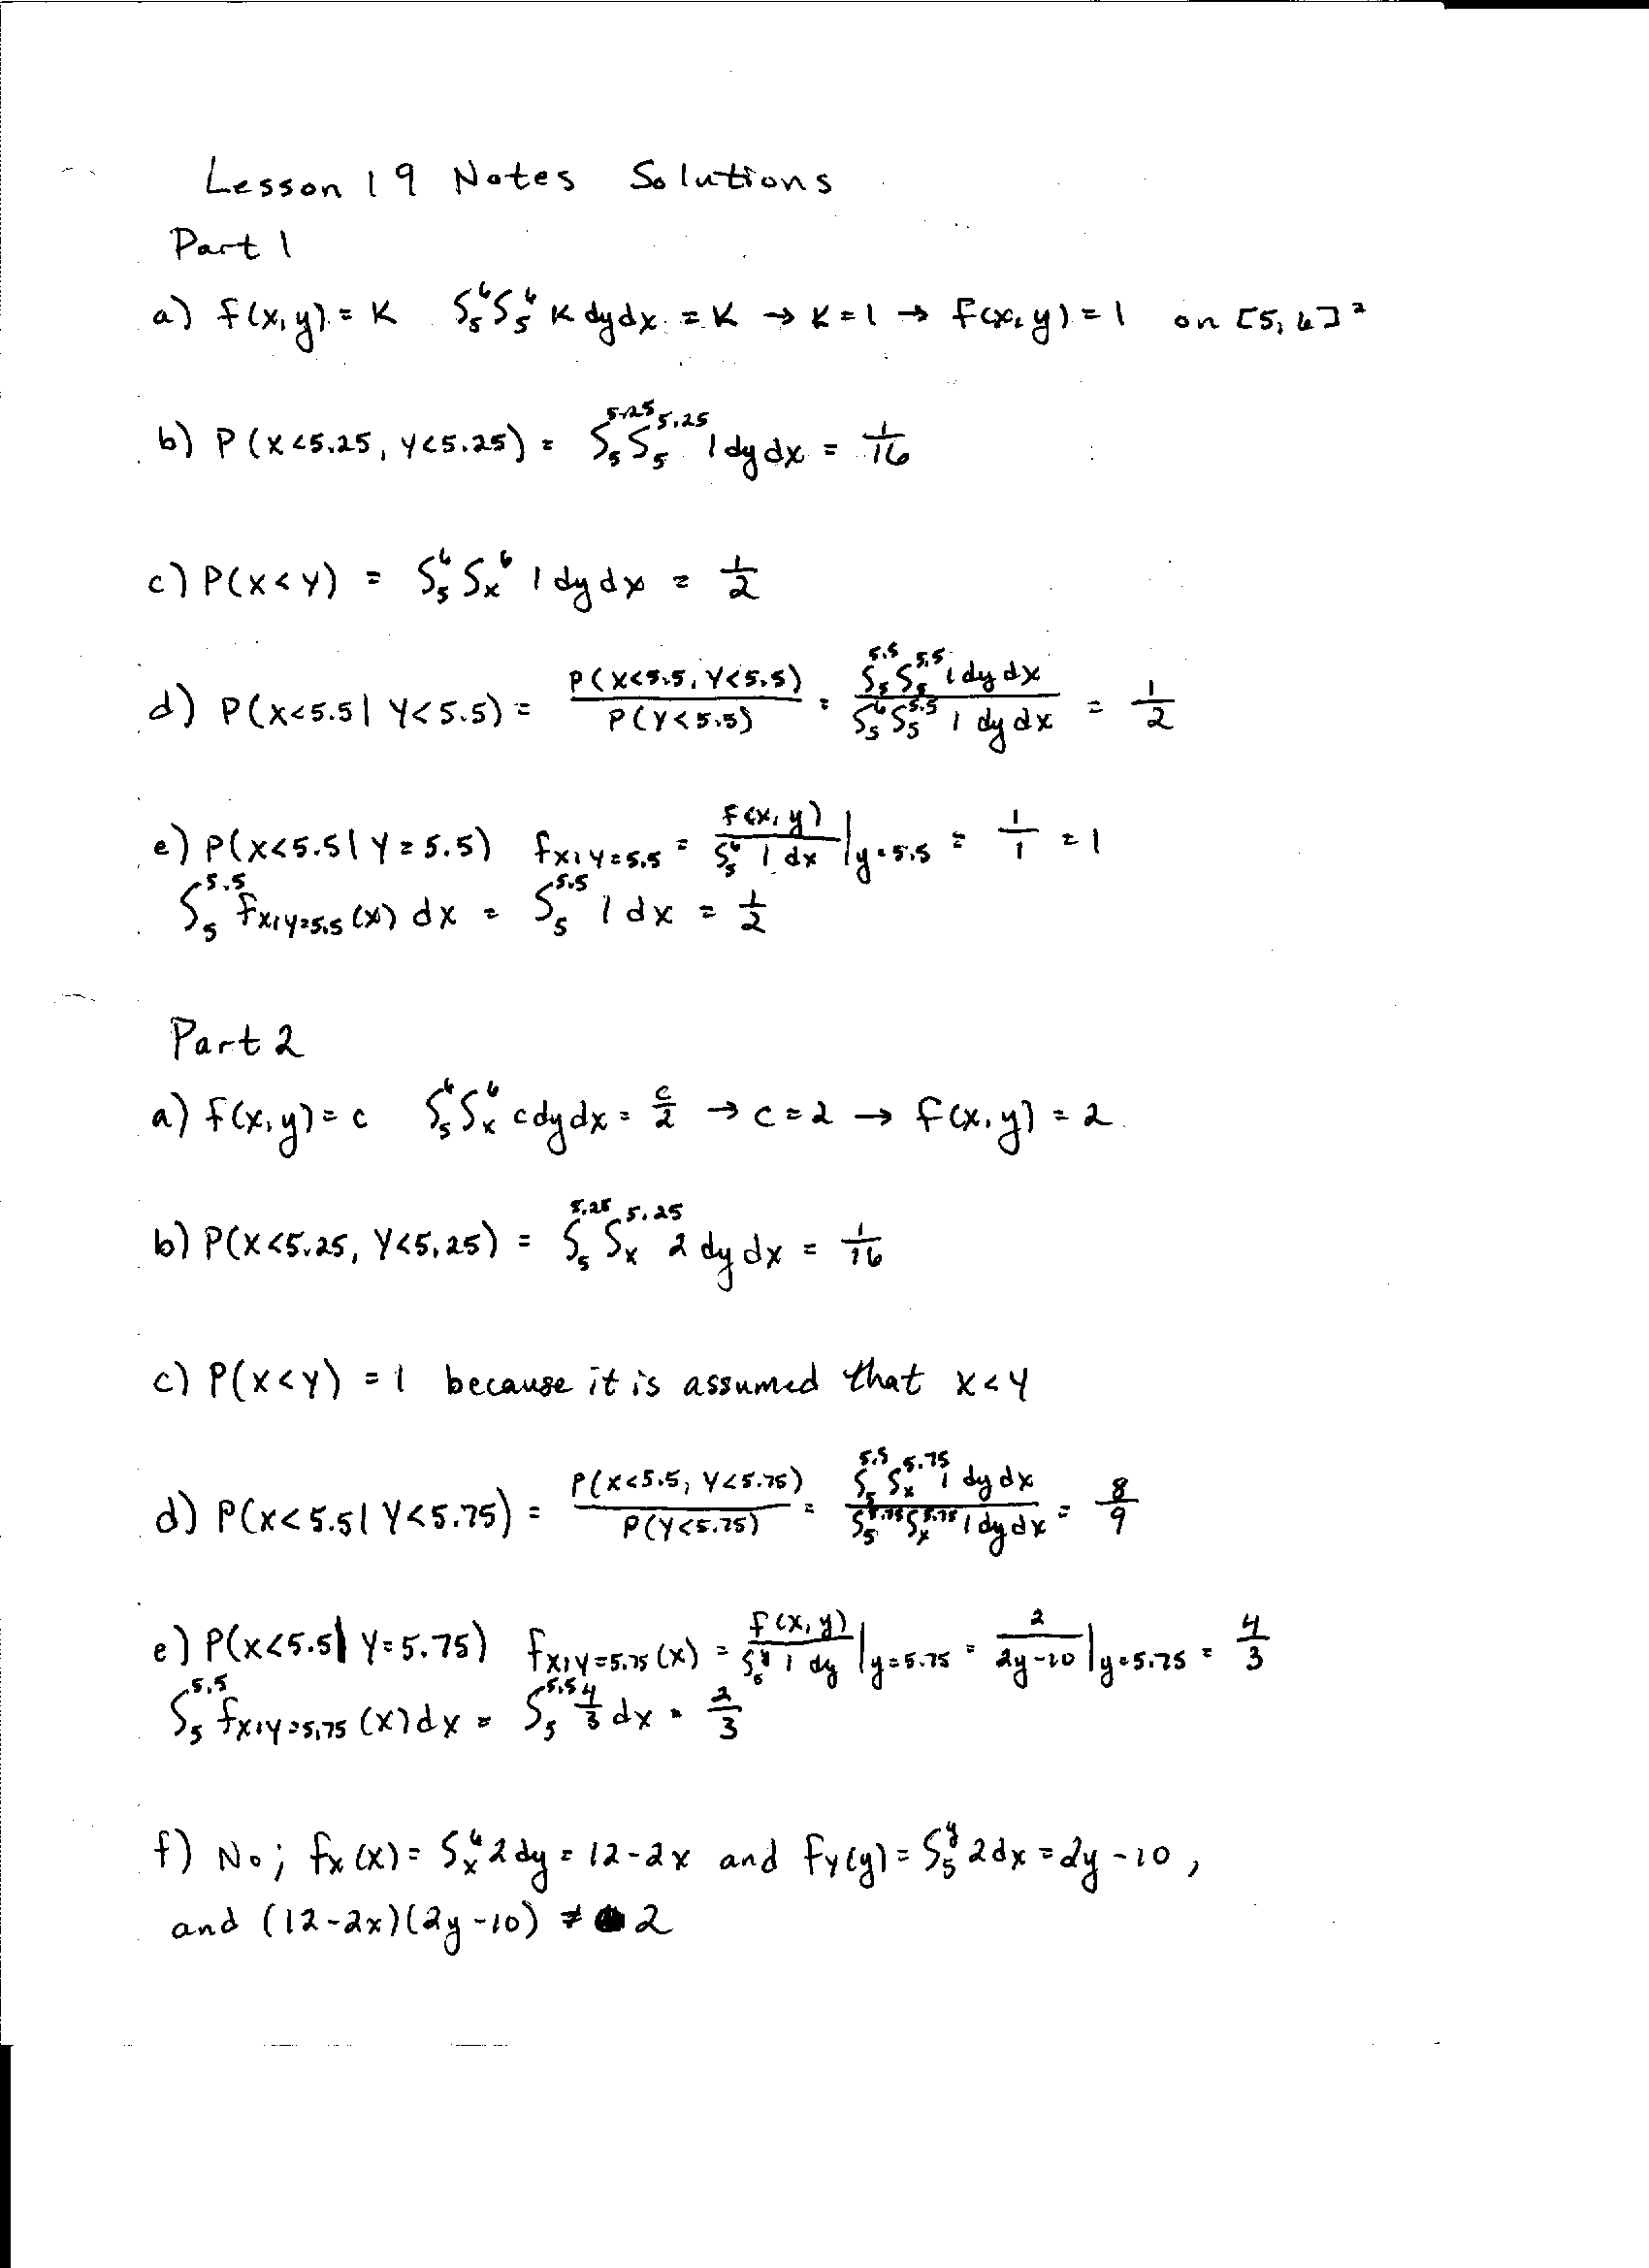 Lesson 19 Notes Solutions
Part 1
a) f(x,y) = K ∫₅⁶∫₅⁶ K dy dx = K → K = 1 → f(x,y) = 1 on [5,6]²
b) P(X<5.25, Y<5.25) = ∫₅^5.25 ∫₅^5.25 1 dy dx = 1/16
c) P(X<Y) = ∫₅⁶∫ₓ⁶ 1 dy dx = 1/2
d) P(X<5.5 | Y<5.5) = P(X<5.5, Y<5.5) / P(Y<5.5) = ∫₅^5.5 ∫₅^5.5 1 dy dx / ∫₅⁶ ∫₅^5.5 1 dy dx = 1/2
e) P(X<5.5 | Y=5.5) f_X|Y=5.5 = f(x,y) / ∫₅⁶ 1 dx |y=5.5 = 1/1 = 1
∫₅^5.5 f_X|Y=5.5 (x) dx = ∫₅^5.5 1 dx = 1/2
Part 2
a) f(x,y) = c ∫₅⁶∫ₓ⁶ c dy dx = c/2 → c = 2 → f(x,y) = 2
b) P(X<5.25, Y<5.25) = ∫₅^5.25 ∫ₓ^5.25 2 dy dx = 1/16
c) P(X<Y) = 1 because it is assumed that X<Y
d) P(X<5.5 | Y<5.75) = P(X<5.5, Y<5.75) / P(Y<5.75) = ∫₅^5.5 ∫ₓ^5.75 1 dy dx / ∫₅^5.75 ∫ₓ^5.75 1 dy dx = 8/9
e) P(X<5.5 | Y=5.75) f_X|Y=5.75 (x) = f(x,y) / ∫₅^y 1 dy |y=5.75 = 2 / 2y-10 |y=5.75 = 4/3
∫₅^5.5 f_X|Y=5.75 (x) dx = ∫₅^5.5 4/3 dx = 2/3
f) No; f_X(x) = ∫ₓ⁶ 2 dy = 12-2x and f_Y(y) = ∫₅^y 2 dx = 2y-10,
and (12-2x)(2y-10) ≠ 2